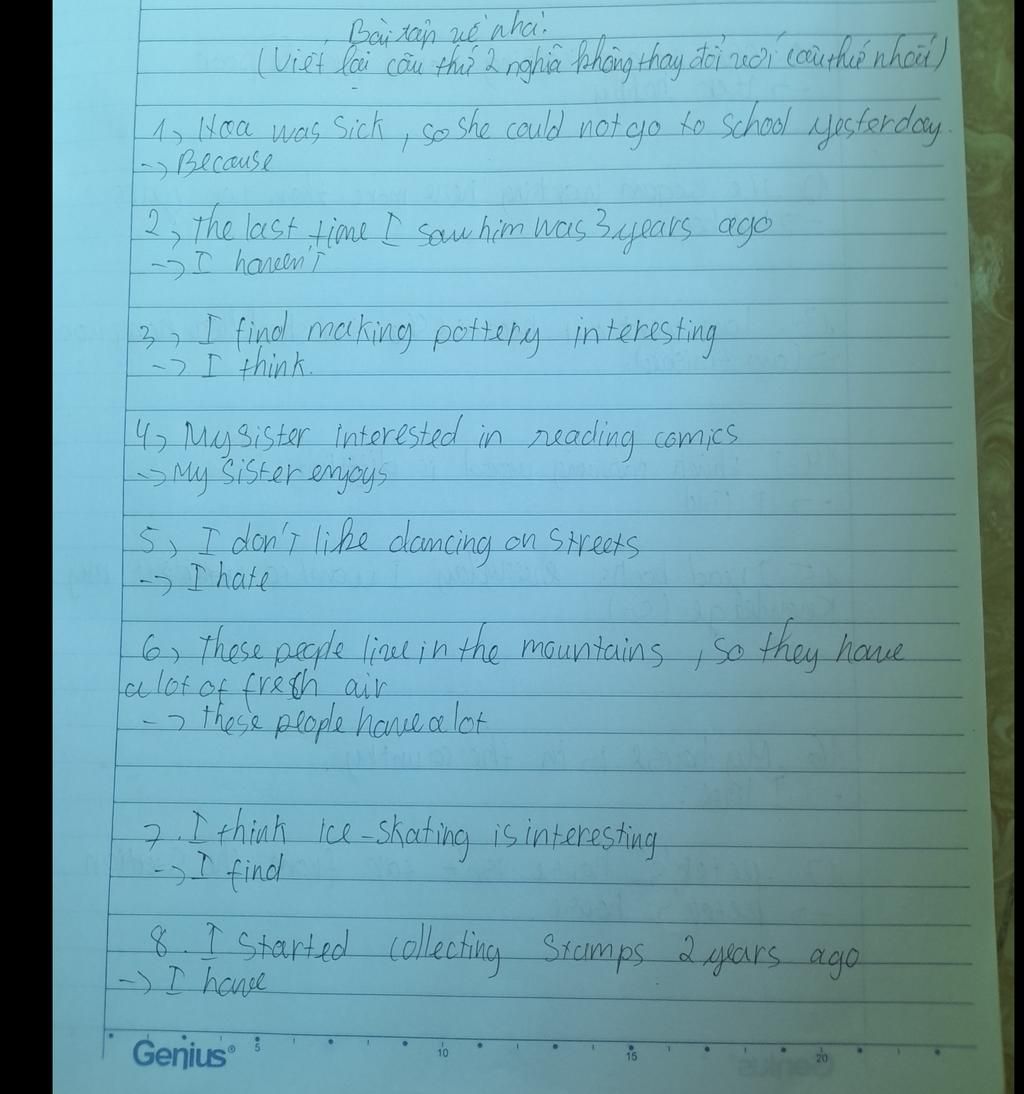 Bài tập về nhà.
(Viết lại câu thứ 2 nghĩa không thay đổi với câu thứ nhất)
1, Hoa was sick, so she could not go to school yesterday.
-> Because
2, The last time I saw him was 3 years ago
-> I haven't
3, I find making pottery interesting
-> I think.
4, My sister interested in reading comics
-> My sister enjoys
5, I don't like dancing on streets
-> I hate
6, These people live in the mountains, so they have
a lot of fresh air
-> These people have a lot
7. I think ice-skating is interesting
-> I find
8. I started collecting stamps 2 years ago
-> I have
Genius® 5 10 15 20